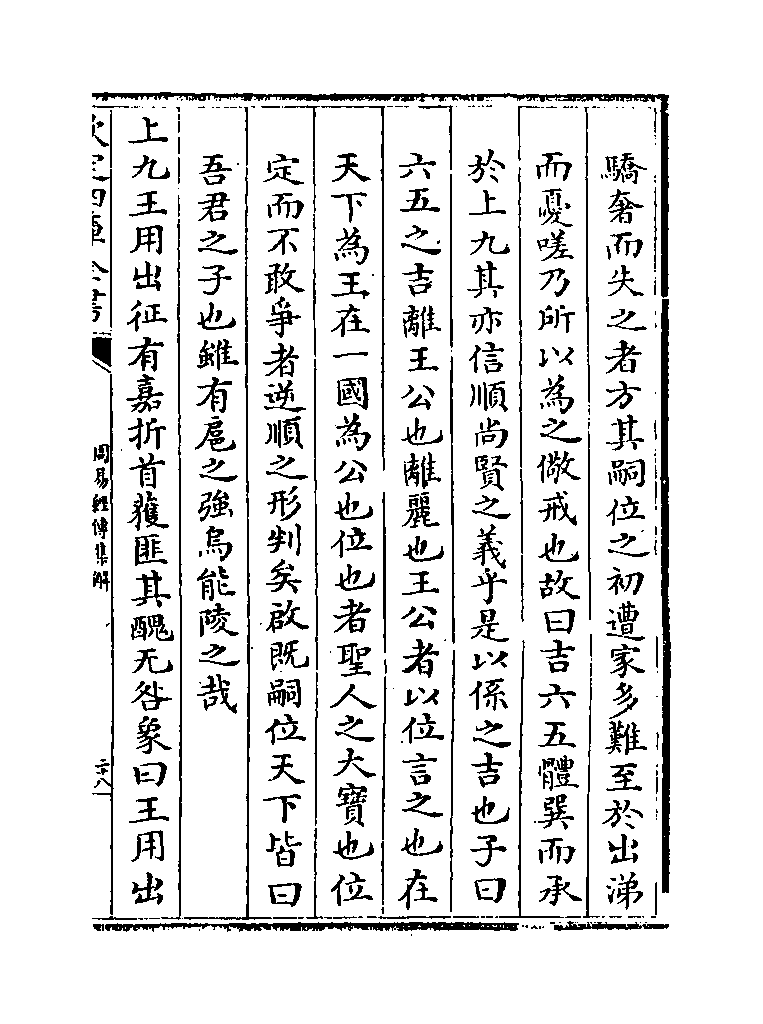 驕奢而失之者方其嗣位之初遭家多難至於出涕
而憂嗟乃所以為之儆戒也故曰吉六五體巽而承
於上九其亦信順尚賢之義乎是以係之吉也子曰
六五之吉離王公也離麗也王公者以位言之也在
天下為王在一國為公也位也者聖人之大寶也位
定而不敢爭者逆順之形判矣啟既嗣位天下皆曰
吾君之子也雖有扈之強烏能陵之哉
上九王用出征有嘉折首獲匪其醜无咎象曰王用出
欽定四庫全書
周易經傳集解
二十八